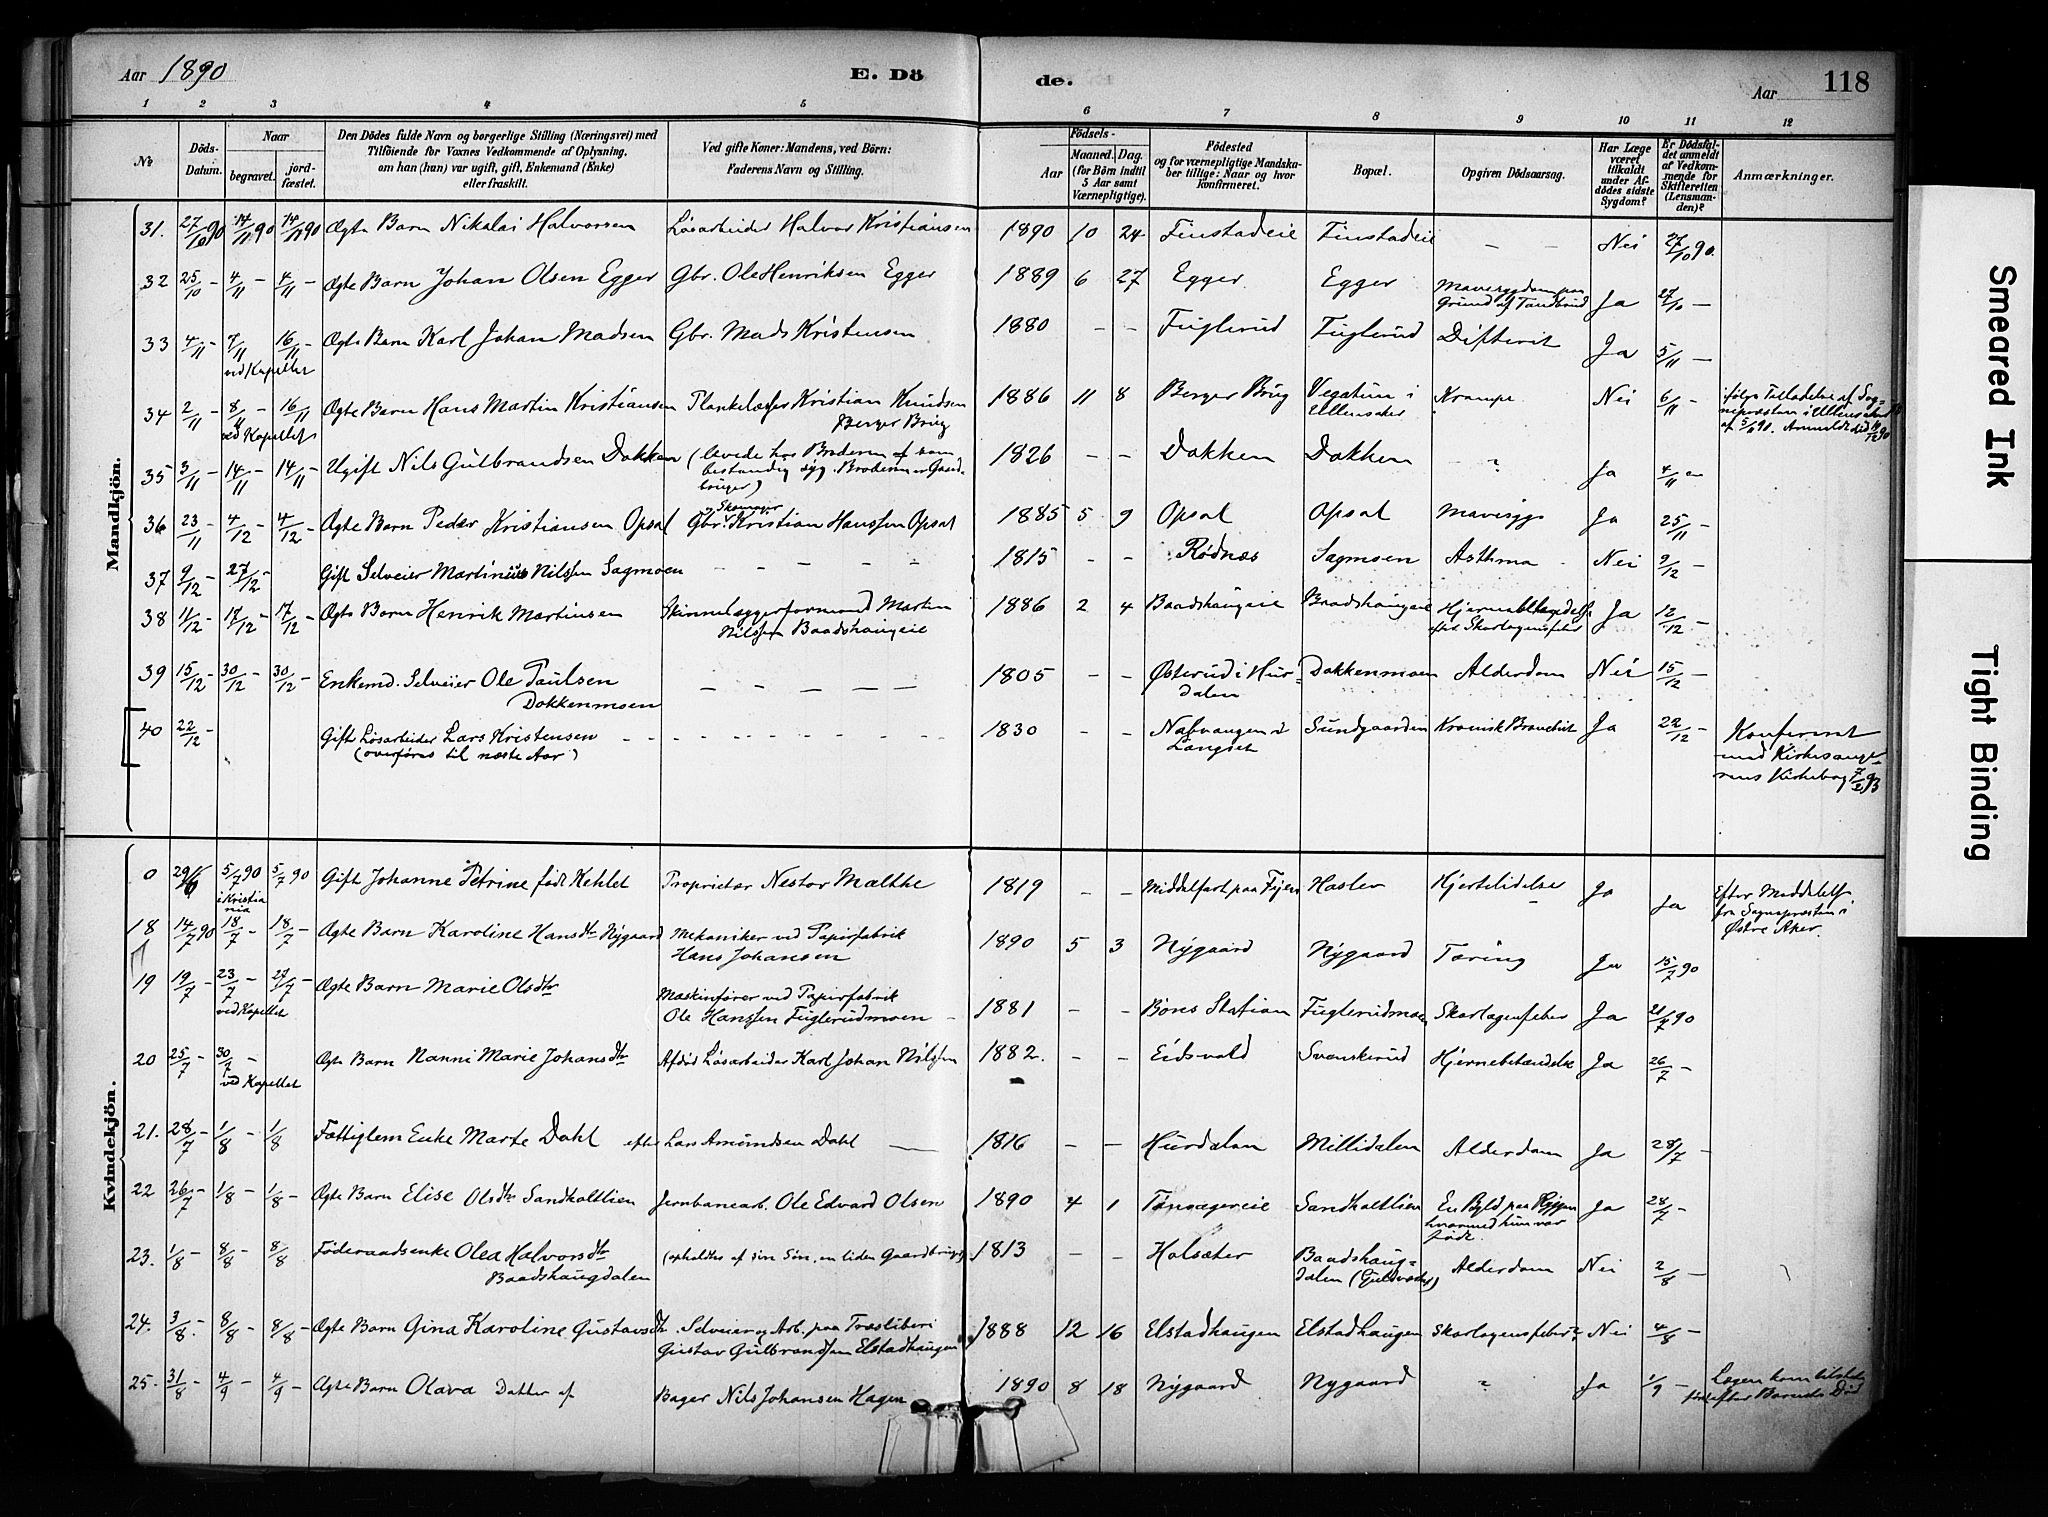 Aar 1890
E. Dö
de.
Aar
118
1 2 3 4 5 6 7 8 9 10 11 12
№
Döds-Datum.
Naar
begravet.
jord-fæstet.
Den Dödes fulde Navn og borgerlige Stilling (Næringsvei) med
Tilföiende for Voxnes Vedkommende af Oplysning,
om han (hun) var ugift, gift, Enkemand (Enke)
eller fraskilt.
Ved gifte Koner: Mandens, ved Börn:
Faderens Navn og Stilling.
Födsels-
Aar
Maaned. Dag.
(for Börn indtil
5 Aar samt
Værnepligtige).
Födested
og for værnepligtige Mandska-
ber tillige: Naar og hvor
konfirmeret.
Bopæl.
Opgiven Dödsaarsag.
Har Læge
været
tilkaldt
under Af-
dödes sidste
Sygdom?
Er Dödsfal-
det anmeldt
af Vedkom-
mende for
Skifteretten
(Lensman-
den)?
Anmærkninger.
Mandkjön.
31. 27/10 90 14/11 90 14/11 90 Ægte Barn Nikolai Halvorsen Løsarbeider Halvor Kristiansen 1890 10 24 Finstadeie Finstadeie – – Nei 27/10 90.
32 25/10 – 4/11 – 4/11 – Ægte Barn Johan Olsen Egger Gbr. Ole Henriksen Egger 1889 6 27 Egger Egger Mavesygdom paa
Grund af Tandbrud Ja 27/10 –
33 4/11 – 7/11 16/11 – Ægte Barn Karl Johan Madsen Gbr. Mads Kristensen 1880 – – Fuglerud Fuglerud Difterit Ja 5/11 –
ved Kapellet
34 2/11 – 8/11 – 16/11 Ægte Barn Hans Martin Kristiansen Plankelæsser Kristian Knudsen
Berger Brug 1886 11 8 Berger Brug i
Ullensaker Krampe Nei 6/11 – ifølge Tilladelse af Sog-
nepræsten i Ullensaker
af 5/11 90.
ved Kapellet
35 3/11 – 14/11 – 14/11 – Ugift Nils Gulbrandsen Dokken (levede hos Broderen
bestandig syg. Broderen er Gaard-
bruger) 1826 – – Dokken Dokken Ja 4/11 –
36 23/11 – 4/12 – 4/12 – Ægte Barn Peder Kristiansen Opsal Gbr. og Skomager Kristian Hanssen Opsal 1885 5 9 Opsal Opsal Mavesyge Ja 25/11 –
37 9/12 – 27/12 – Gift Selveier Martinius Nilssen Sagmoen – – – – – 1815 – – Rødnæs Sagmoen Asthma Nei 9/12 –
38 11/12 – 17/12 – 17/12 – Ægte Barn Henrik Martinsen Skinnelæggerformand Martin
Nilssen Baadshaugeie 1886 2 4 Baadshaugeie Baadshaugeie
efter Skarlagensfeber Ja 12/12 –
39 15/12 – 30/12 – 30/12 – Enkemd. Selveier Ole Paulsen
Dokkenmoen – – – – – 1805 – – Østerud i Hur-
dalen Dokkenmoen Alderdom Nei 15/12 –
40 22/12 – Gift Løsarbeider Lars Kristensen
(overføres til næste Aar) 1830 – – i
Langset Sundgaarden Kronisk Bronchit Ja 22/12 – Konfereret
med Kirkesange-
rens Kirkebog
Kvindekjön.
0 29/6 5/7 90 5/7 90 Gift Johanne Petrine født Kehlet Proprietær Nestor Mælthe 1819 – – Middelfart paa Fyen Haslev Hjertelidelse Ja Ja Efter Meddelelse
fra Sognepræsten i
Østre Aker.
i Kristia
nia
18 14/7 90 18/7 – 18/7 – Ægte Barn Karoline Hansdtr Nygaard Mekaniker ved Papirfabrik
Hans Johansen 1890 5 3 Nygaard Nygaard Tæring Ja 15/7 90
19 19/7 – 23/7 – 27/7 – Ægte Barn Marie Olsdtr Maskinfører ved Papirfabrik
Ole Hanssen Fuglerudmoen – 1881 – – Bøns Station Fuglerudmoen Skarlagensfeber Ja 21/7 90
ved Kapellet
20 25/7 – 30/7 – Ægte Barn Nanni Marie Johansdtr Afdød Løsarbeider Karl Johan Nilssen 1882. – – Eidsvold Svenskerud Hjernebetændelse Ja 26/7 –
ved Kapellet
21. 28/7 – 1/8 – 1/8 Fattiglem Enke Marte Dahl efter Lars Amundsen Dahl — 1816 – – Hurdalen Millidalen Alderdom Ja 28/7 –
22 26/7 – 1/8 – 1/8 – Ægte Barn Elise Olsdtr Sandholtlien Jernbanearb. Ole Edvard Olsen 1890 4 1 Tønsagereie Sandholtlien En Byld paa Ryggen
hvormed hun var
født. Ja 28/7 –
23. 1/8 – 8/8 – 8/8 Føderaadsenke Olea Halvorsdtr
Baadshaugdalen (opholdtes af sin Søn, en liden Gaardbruger) 1813 – – Holsæter Baadshaug-
dalen Alderdom Nei 2/8 –
24. 3/8 – 8/8 – 8/8 – Ægte Barn Gina Karoline Gustavsdtr Selveier og Arb. paa Træsliberi
Gustav Gulbrandsen Elstadhaugen 1888 12 16 Elstadhaugen Elstadhaugen Skarlagensfeber? Nei 4/8 –
25. 31/8 – 4/9 – 4/9 – Ægte Barn Olava Datter af Bager Nils Johansen Hagen 1890 8 18 Nygaard Nygaard " Ja 1/9 – Lægen kom tilstede
først efter Barnets Død
Smeared Ink
Tight Binding